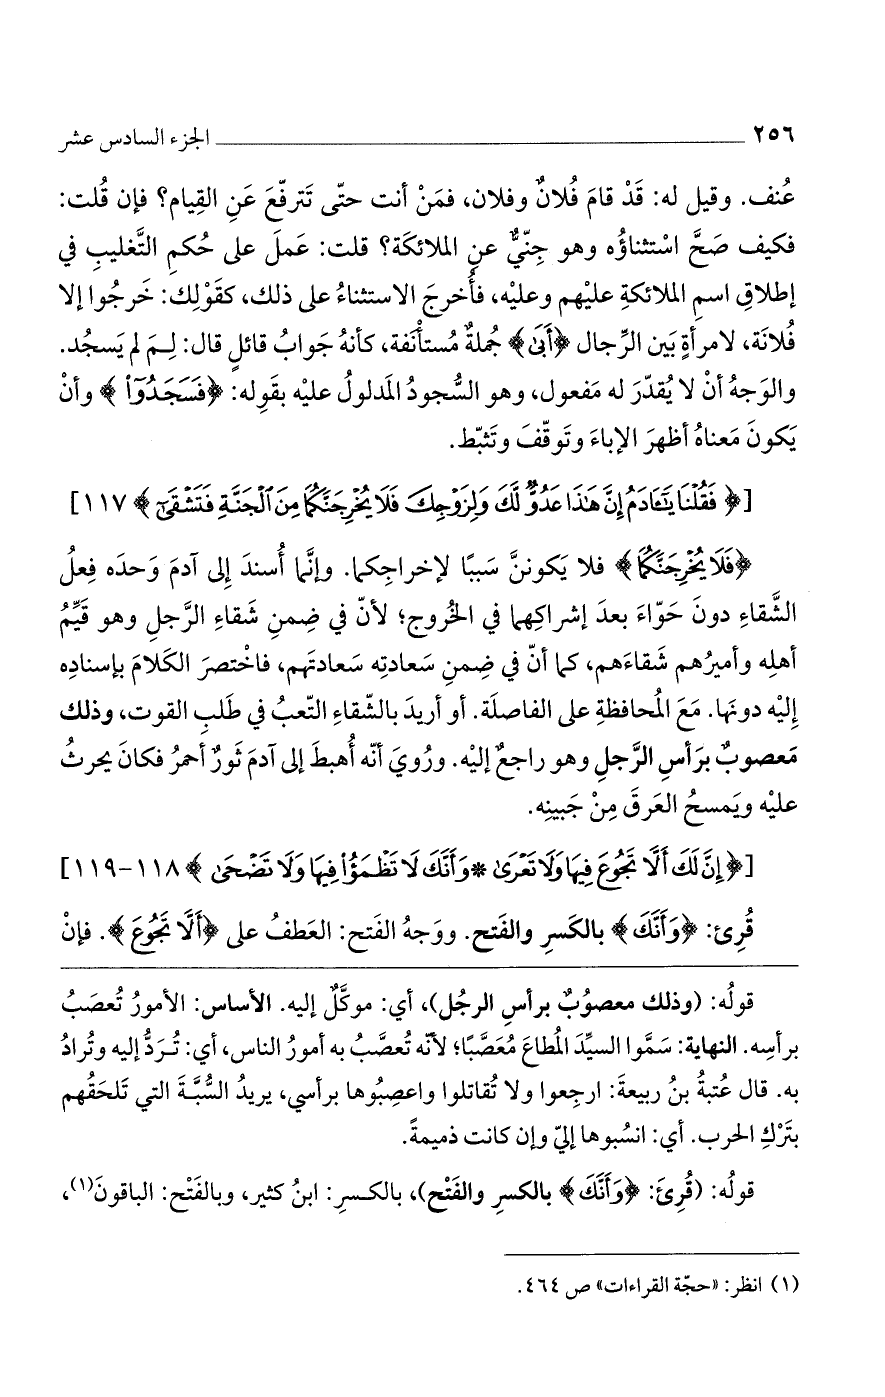 ٢٥٦ الجزء السادس عشر
عُنف. وقيل له: قَدْ قامَ فُلانٌ وفلان، فمَنْ أنت حتّى تَترفّعَ عَنِ القِيام؟ فإن قُلت:
فكيف صَحَّ اسْتثناؤُه وهو جِنّيٌّ عنِ الملائكَة؟ قلت: عَملَ على حُكمِ التَّغليبِ في
إطلاقِ اسمِ الملائكةِ عليْهم وعليْه، فأُخرجَ الاستثناءُ على ذلك، كقَوْلِك: خَرجُوا إلا
فُلانَة، لامرأةٍ بَين الرِّجال ﴿أَبَىٰ﴾ جُملةٌ مُستأنَفة، كأنهُ جَوابُ قائلٍ قال: لِـمَ لم يَسجُد.
والوَجهُ أنْ لا يُقدّرَ له مَفعول، وهو السُّجودُ المَدلولُ عليْه بقَولِه: ﴿فَسَجَدُوٓاْ﴾ وأنْ
يَكونَ مَعناهُ أظهرَ الإباءَ وتَوقّفَ وتَثبّط.
[﴿فَقُلْنَا يَٰٓـَٔادَمُ إِنَّ هَٰذَا عَدُوٌّ لَّكَ وَلِزَوْجِكَ فَلَا يُخْرِجَنَّكُمَا مِنَ ٱلْجَنَّةِ فَتَشْقَىٰٓ﴾ ١١٧]
﴿فَلَا يُخْرِجَنَّكُمَا﴾ فلا يَكوننَّ سَببًا لإخراجِكما. وإنَّما أُسندَ إلى آدمَ وَحدَه فِعلُ
الشَّقاءِ دونَ حَوّاءَ بعدَ إشراكِهما في الخُروج؛ لأنّ في ضِمنِ شَقاءِ الرَّجلِ وهو قَيِّمُ
أهلِه وأميرُهم شَقاءَهم، كما أنّ في ضِمنِ سَعادتِه سَعادتَهم، فاختصرَ الكَلامَ بإسنادِه
إليْه دونَها. مَعَ المُحافظةِ على الفاصلَة. أو أريدَ بالشّقاءِ التّعبُ في طَلبِ القوت، وذلك
مَعصوبٌ برَأسِ الرَّجلِ وهو راجعٌ إليْه. ورُويَ أنّه أُهبطَ إلى آدمَ ثَورٌ أحمرُ فكانَ يحرثُ
عليْه ويَمسحُ العَرقَ مِنْ جَبينِه.
[﴿إِنَّ لَكَ أَلَّا تَجُوعَ فِيهَا وَلَا تَعْرَىٰ * وَأَنَّكَ لَا تَظْمَؤُاْ فِيهَا وَلَا تَضْحَىٰ﴾ ١١٨-١١٩]
قُرِئ: ﴿وَأَنَّكَ﴾ بالكَسرِ والفَتح. ووَجهُ الفَتح: العَطفُ على ﴿أَلَّا تَجُوعَ﴾. فإنْ
قولُه: (وذلك معصوبٌ برأسِ الرجُل)، أي: موكَّلٌ إليه. الأساس: الأمورُ تُعصَبُ
برأسِه. النهاية: سَمَّوا السيِّدَ المُطاعَ مُعَصَّبًا؛ لأنّه تُعصَّبُ به أمورُ الناس، أي: تُـرَدُّ إليه وتُدارُ
به. قال عُتبةُ بنُ ربيعةَ: ارجِعوا ولا تُقاتلوا واعصِبُوها برأسي، يريدُ السُّبَّـةَ التي تَلحَقُهم
بتَرْكِ الحرب. أي: انسُبوها إليّ وإن كانت ذميمةً.
قولُه: (قُرِئَ: ﴿وَأَنَّكَ﴾ بالكسرِ والفَتْح)، بالكـسرِ: ابنُ كثير، وبالفَتْح: الباقونَ(١)،
(١) انظر: «حجّة القراءات» ص ٤٦٤.